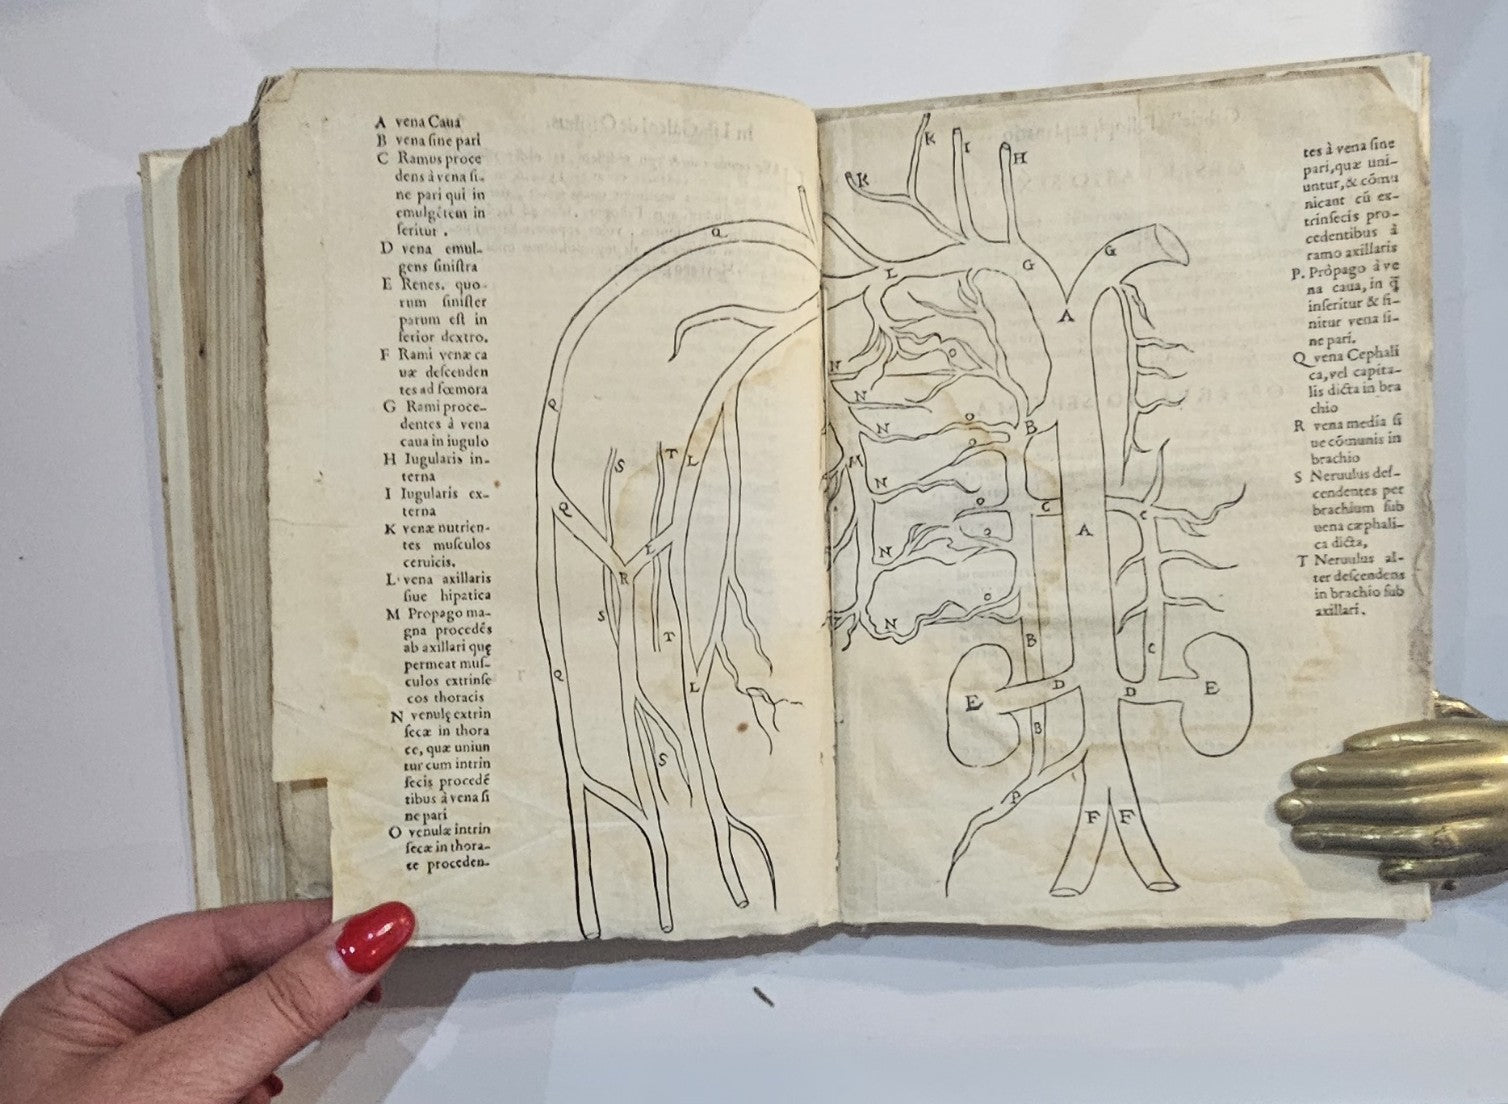 A vena Caua
B vena sine pari
C Ramus proce
dens à vena si-
ne pari qui in
emulgētem in
seritur .
D vena emul-
gens sinistra
E Renes. quo-
rum sinister
parum est in
ferior dextro.
F Rami venæ ca
uæ descenden
tes ad fœmora
G Rami proce-
dentes à vena
caua in iugulo
H Iugularis in-
terna
I Iugularis ex-
terna
K venæ nutrien-
tes musculos
ceruicis.
L vena axillaris
siue hipatica
M Propago ma-
gna procedēs
ab axillari quę
permeat mus-
culos extrinse
cos thoracis
N venulę extrin
secæ in thora
ce, quæ uniun
tur cum intrin
secis procedē
tibus à vena si
ne pari
O venulæ intrin
secæ in thora-
ce proceden-
Q
Q
Q
Q
S
T
L
L
R
S
T
L
S
K
K
I
H
L
G
G
A
N
N
N
M
N
N
N
O
O
O
O
O
O
B
C
A
C
B
C
E
D
D
E
B
P
F
F
tes à vena sine
pari, quæ uni-
untur, & cōmu
nicant cū ex-
trinsecis pro-
cedentibus à
ramo axillaris
P. Propago à ve
na caua, in q̄
inseritur & fi-
nitur vena si-
ne pari.
Q vena Cephali
ca, vel capita-
lis dicta in bra
chio
R vena media si
ue cōmunis in
brachio
S Neruulus des-
cendentes per
brachium sub
uena cæphali-
ca dicta,
T Neruulus al-
ter descendens
in brachio sub
axillari.